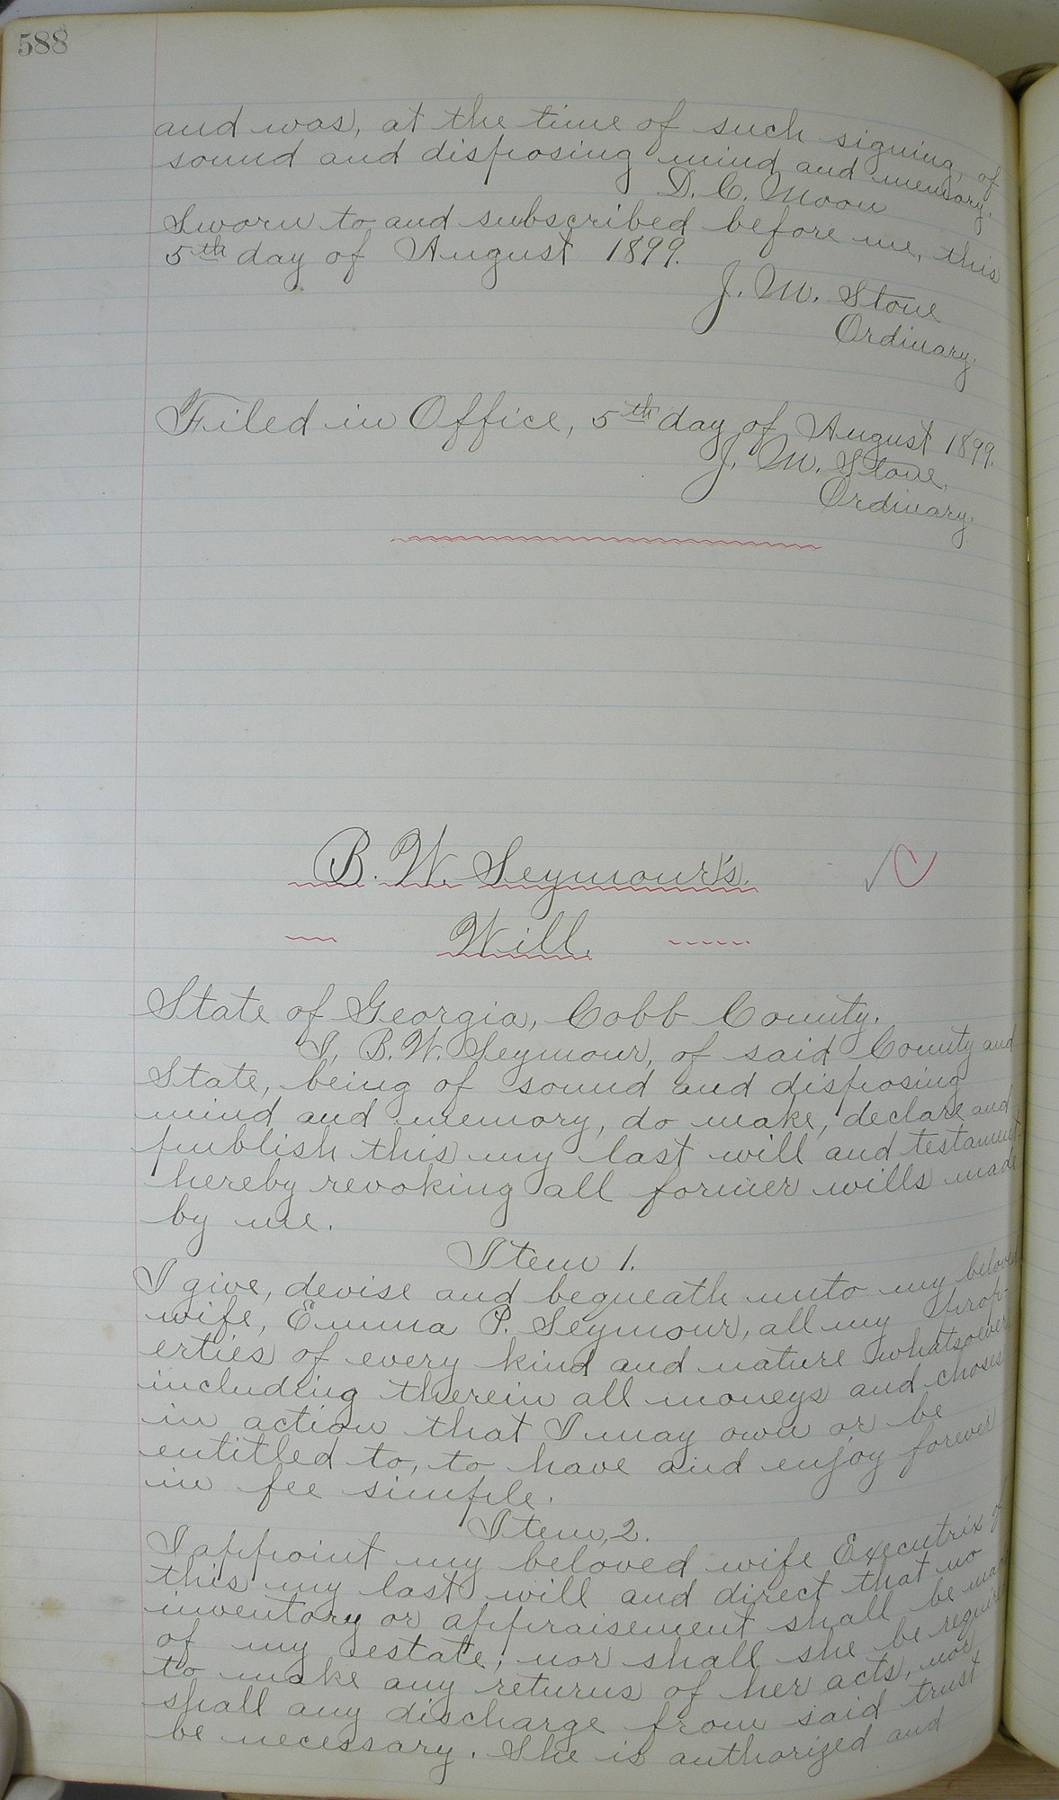 588
and was, at the time of such signing, of
sound and disposing mind and memory.
D. C. Moon
Sworn to and subscribed before me, this
5th day of August 1899.
J. M. Stone
Ordinary.
Filed in Office, 5th day of August 1899.
J. M. Stone,
Ordinary.
B. W. Seymour's.
Will.
State of Georgia, Cobb County.
I, B. W. Seymour, of said County and
State, being of sound and disposing
mind and memory, do make, declare and
publish this my last will and testament
hereby revoking all former wills made
by me.
Item 1.
I give, devise and bequeath unto my beloved
wife, Emma P. Seymour, all my prop-
erties of every kind and nature whatsoever
including therein all moneys and choses
in action that I may own or be
entitled to, to have and enjoy forever
in fee simple.
Item, 2.
I appoint my beloved wife Executrix of
this my last will and direct that no
inventory or appraisement shall be made
of my estate; nor shall she be required
to make any returns of her acts, nor
shall any discharge from said trust
be necessary. She is authorized and